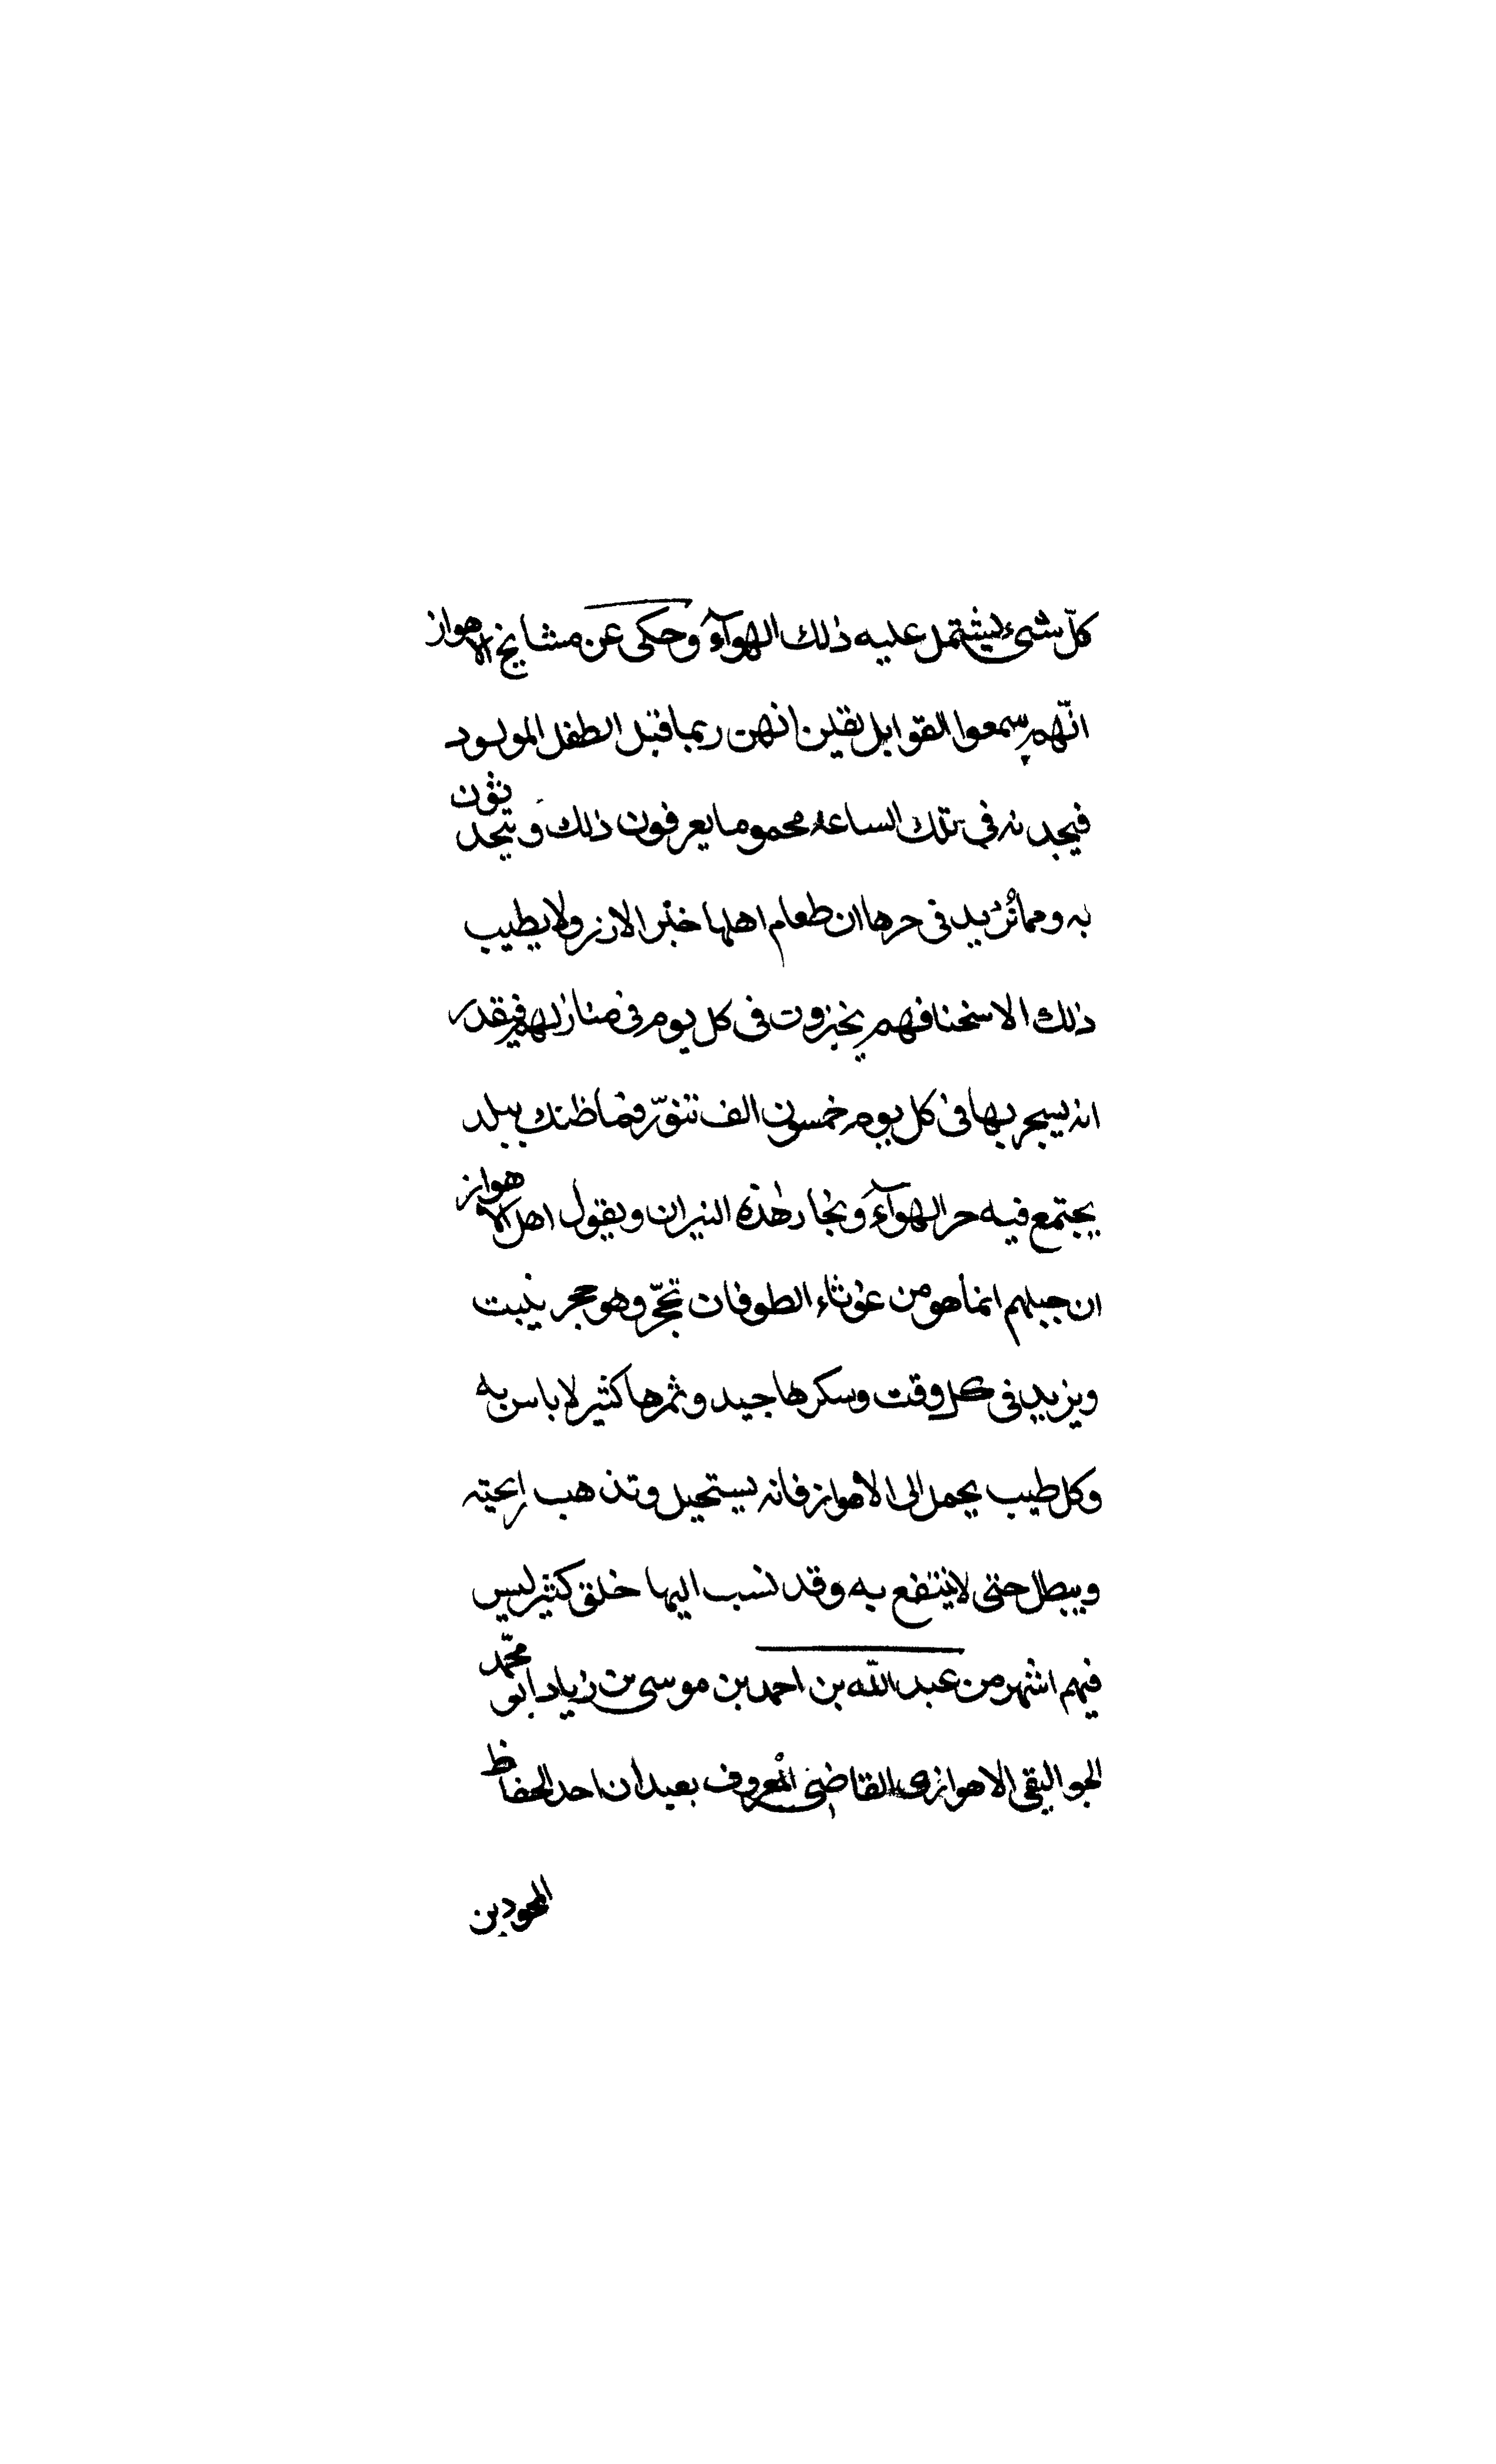 كلّ شيء يشتمل عليه ذلك الهوآء وحكى عن مشايخ الاهواز
انّهم سمعوا القوابل يقلن انهن ربما قبل الطفل المولود
فيجدنه في تلك الساعه محموما يعرفون ذلك ويتحدثون
به ومما تزيد في حرها ان طعام اهلها خبز الارز ولا يطيب
ذلك الا سخنا فهم يخبزون في كل يوم في منازلهم فيقدر
انه يسجر بها في كل يوم خمسون الف تنوّر فما ظنك ببلد
يجتمع فيه حر الهوآء وبخار هذه النيران ويقول اهل الاهواز
ان جبلهم انما هو من غوثاء الطوفان تحجّر وهو حجر ينبت
ويزيد في كل وقت وسكرها جيد وثمرها كثير لا باس به
وكل طيب يحمل الى الاهواز فانه يستحيل وتذهب رايحته
ويبطل حتى لا ينتفع به وقد نسب اليها خلق كثير ليس
فيهم اشهر من عبد الله بن احمد بن موسى بن زياد ابو محمّد
الجواليقي الاهوازي القاضي المعروف بعبدان احد الحفاظ